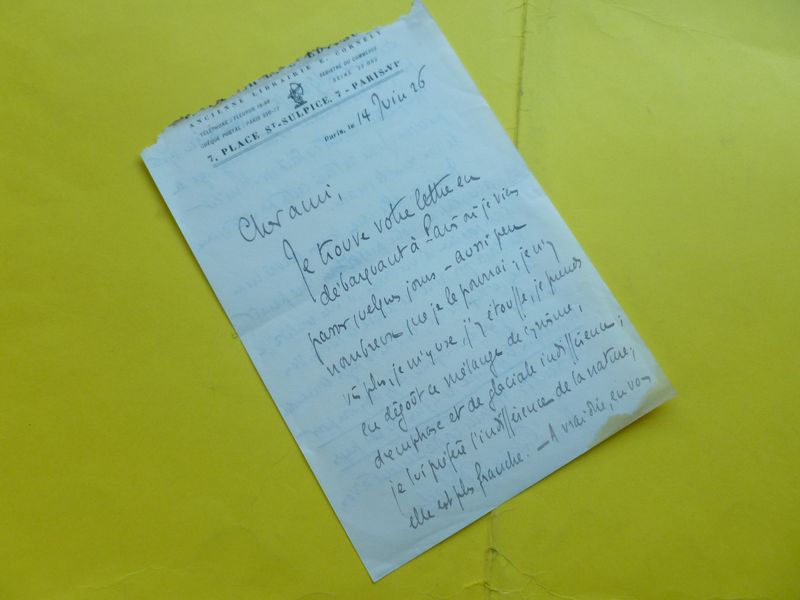 ANCIENNE LIBRAIRIE E. CORNELY
TÉLÉPHONE : FLEURUS
REGISTRE DU COMMERCE
CHÈQUE POSTAL : PARIS
SEINE
7, PLACE ST-SULPICE, 7 - PARIS-VIe
Paris, le 14 Juin 26
Cher ami,
Je trouve votre lettre en
débarquant à Paris où je viens
passer quelques jours - aussi peu
nombreux que je le pourrai ; je n'y
vis plus, je m'y use, j'y étouffe, je prends
en dégoût ce mélange de cynisme,
d'emphase et de glaciale indifférence ;
je lui préfère l'indifférence de la nature,
elle est plus franche. — A vrai dire, en vous